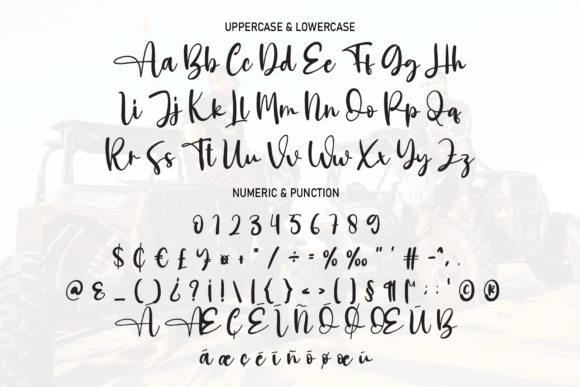 UPPERCASE & LOWERCASE
Aa Bb Cc Dd Ee Ff Gg Hh
Ii Jj Kk Ll Mm Nn Oo Pp Qq
Rr Ss Tt Uu Vv Ww Xx Yy Zz
NUMERIC & PUNCTION
0 1 2 3 4 5 6 7 8 9
$ ₵ € £ ¥ ¤ + * / ÷ = % ‰ " ' # - ^ , .
@ & _ ( ) ¿ ? ¡ ! \ | { } < > ( ) § ¶ : ; ' © ®
À Æ Ç É Î Ñ Ó Ø Œ Ú ß
á æ ç é î ñ ó ø œ ú